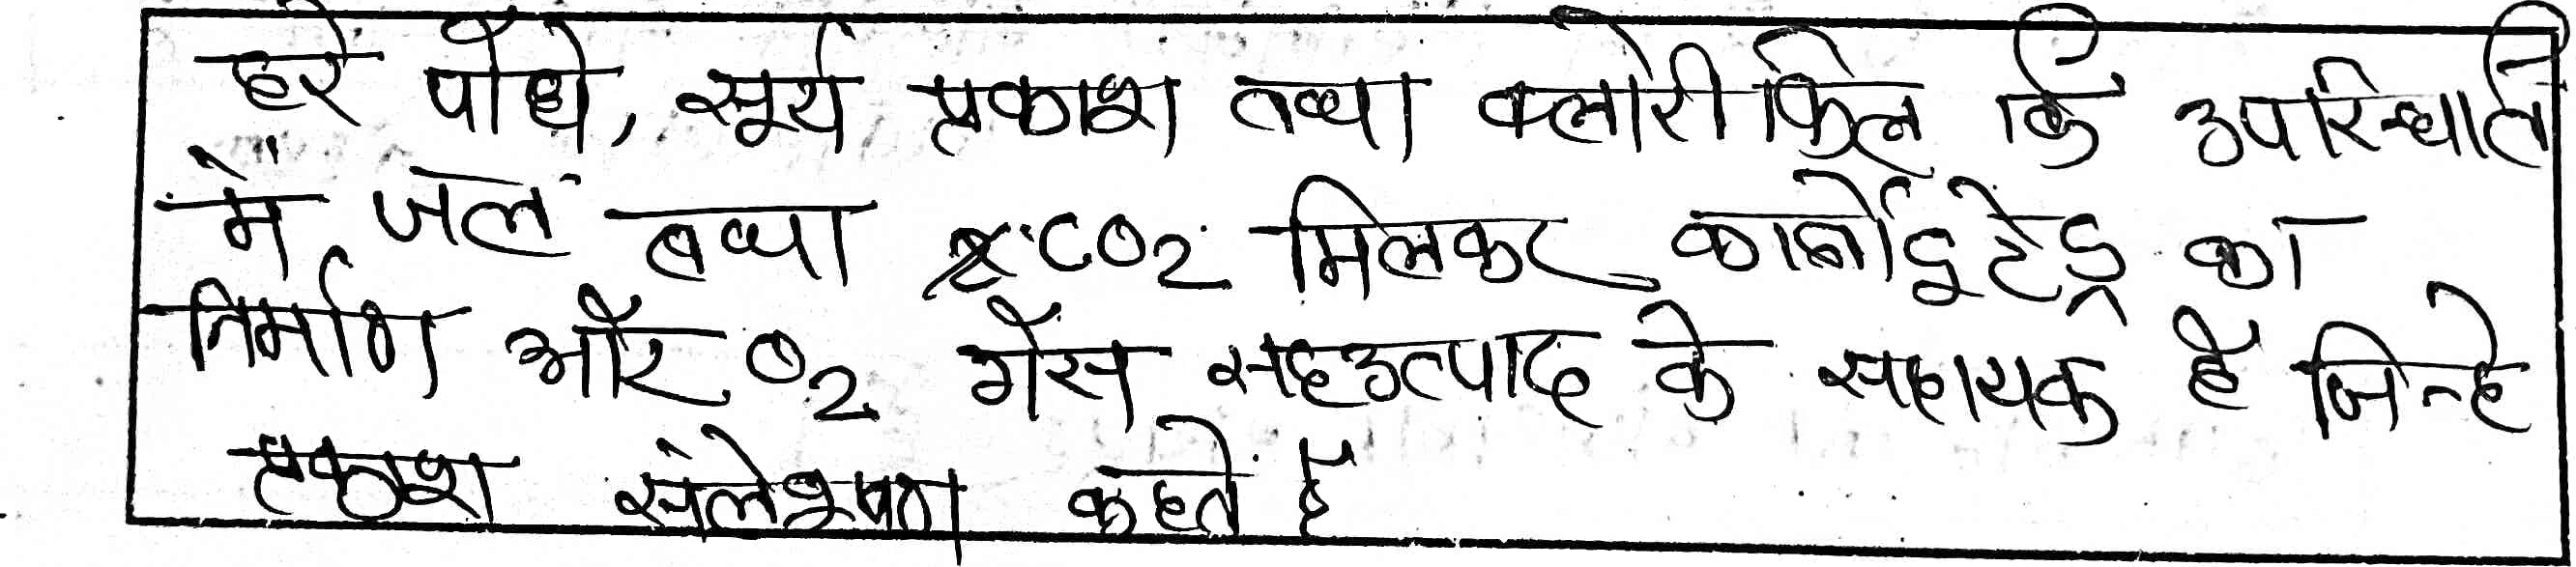 हरे पौधे, सूर्य प्रकाश तथा क्लोरीफिल कि उपस्थिति
में जल तथा CO2 मिलकर कार्बोइटेड्र का
निर्माण और O2 गैस सहउत्पाद के सहायक है जिन्हे
प्रकाश संलेश्षण कहते है